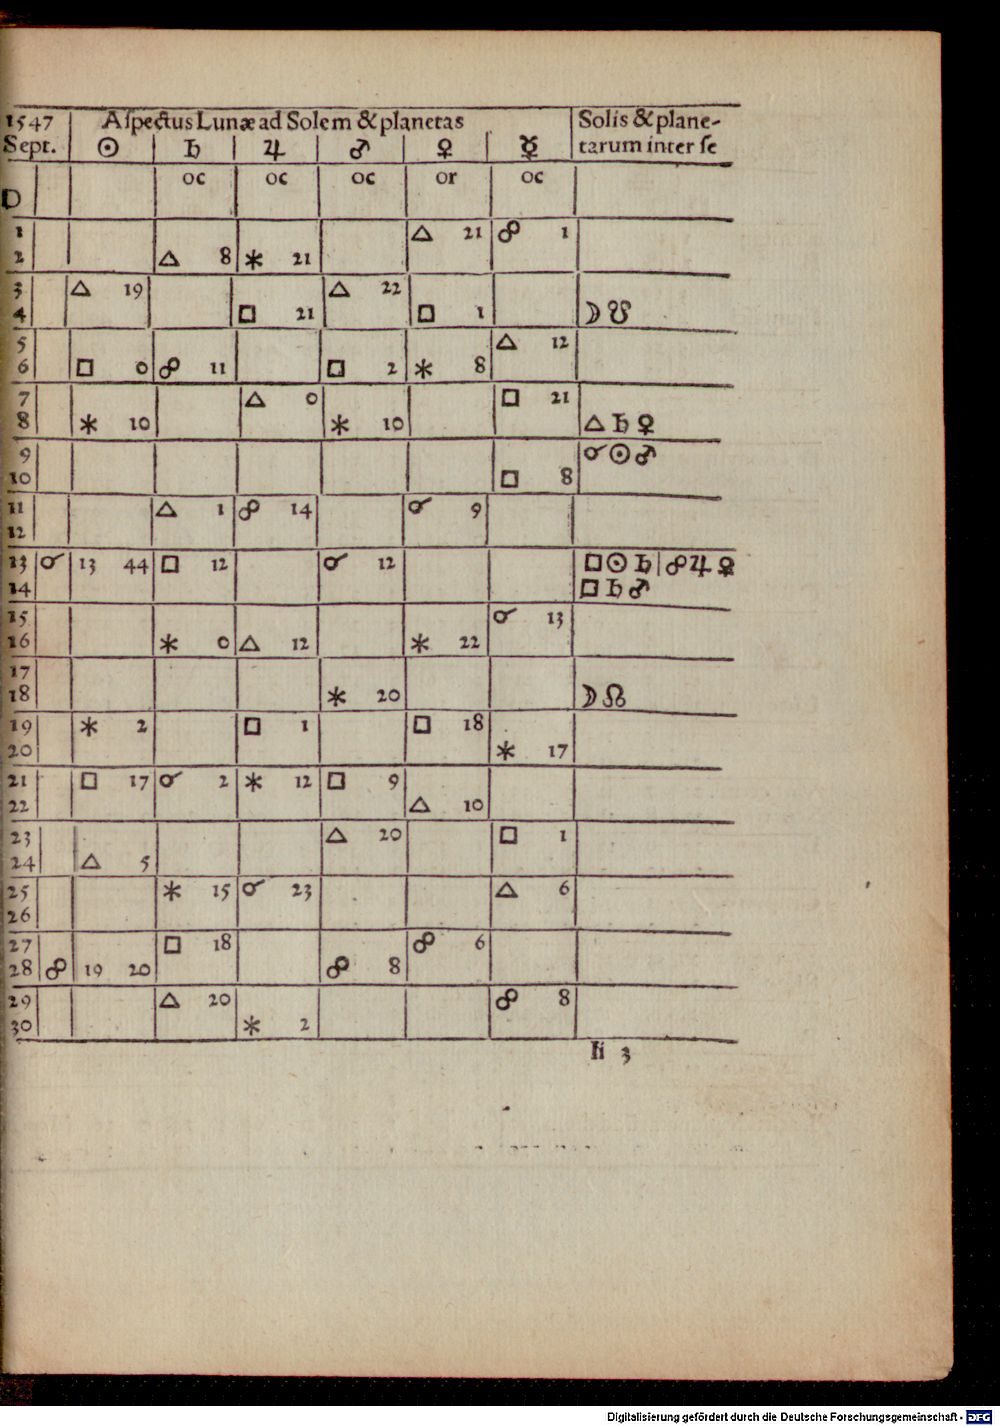 1547 Aſpectus Lunæ ad Solem & planetas Solis & plane-
Sept. ☉ ♄ ♃ ♂ ♀ ☿ tarum inter ſe
D oc oc oc or oc
1 △ 21 ☍ 1
2 △ 8 ⚹ 21
3 △ 19 △ 22
4 □ 21 □ 1 ☽ ☋
5 △ 12
6 □ 0 ☍ 11 □ 2 ⚹ 8
7 △ 0 □ 21
8 ⚹ 10 ⚹ 10 △ ♄ ♀
9 ☌ ☉ ♂
10 □ 8
11 △ 1 ☍ 14 ☌ 9
12
13 ☌ 13 44 □ 12 ☌ 12 □ ☉ ♄ | ☍ ♃ ♀
14 □ ♄ ♂
15 ☌ 13
16 ⚹ 0 △ 12 ⚹ 22
17
18 ⚹ 20 ☽ ☊
19 ⚹ 2 □ 1 □ 18
20 ⚹ 17
21 □ 17 ☌ 2 ⚹ 12 □ 9
22 △ 10
23 △ 20 □ 1
24 △ 5
25 ⚹ 15 ☌ 23 △ 6
26
27 □ 18 ☍ 6
28 ☍ 19 20 ☍ 8
29 △ 20 ☍ 8
30 ⚹ 2
Ii 3
Digitalisierung gefördert durch die Deutsche Forschungsgemeinschaft - DFG